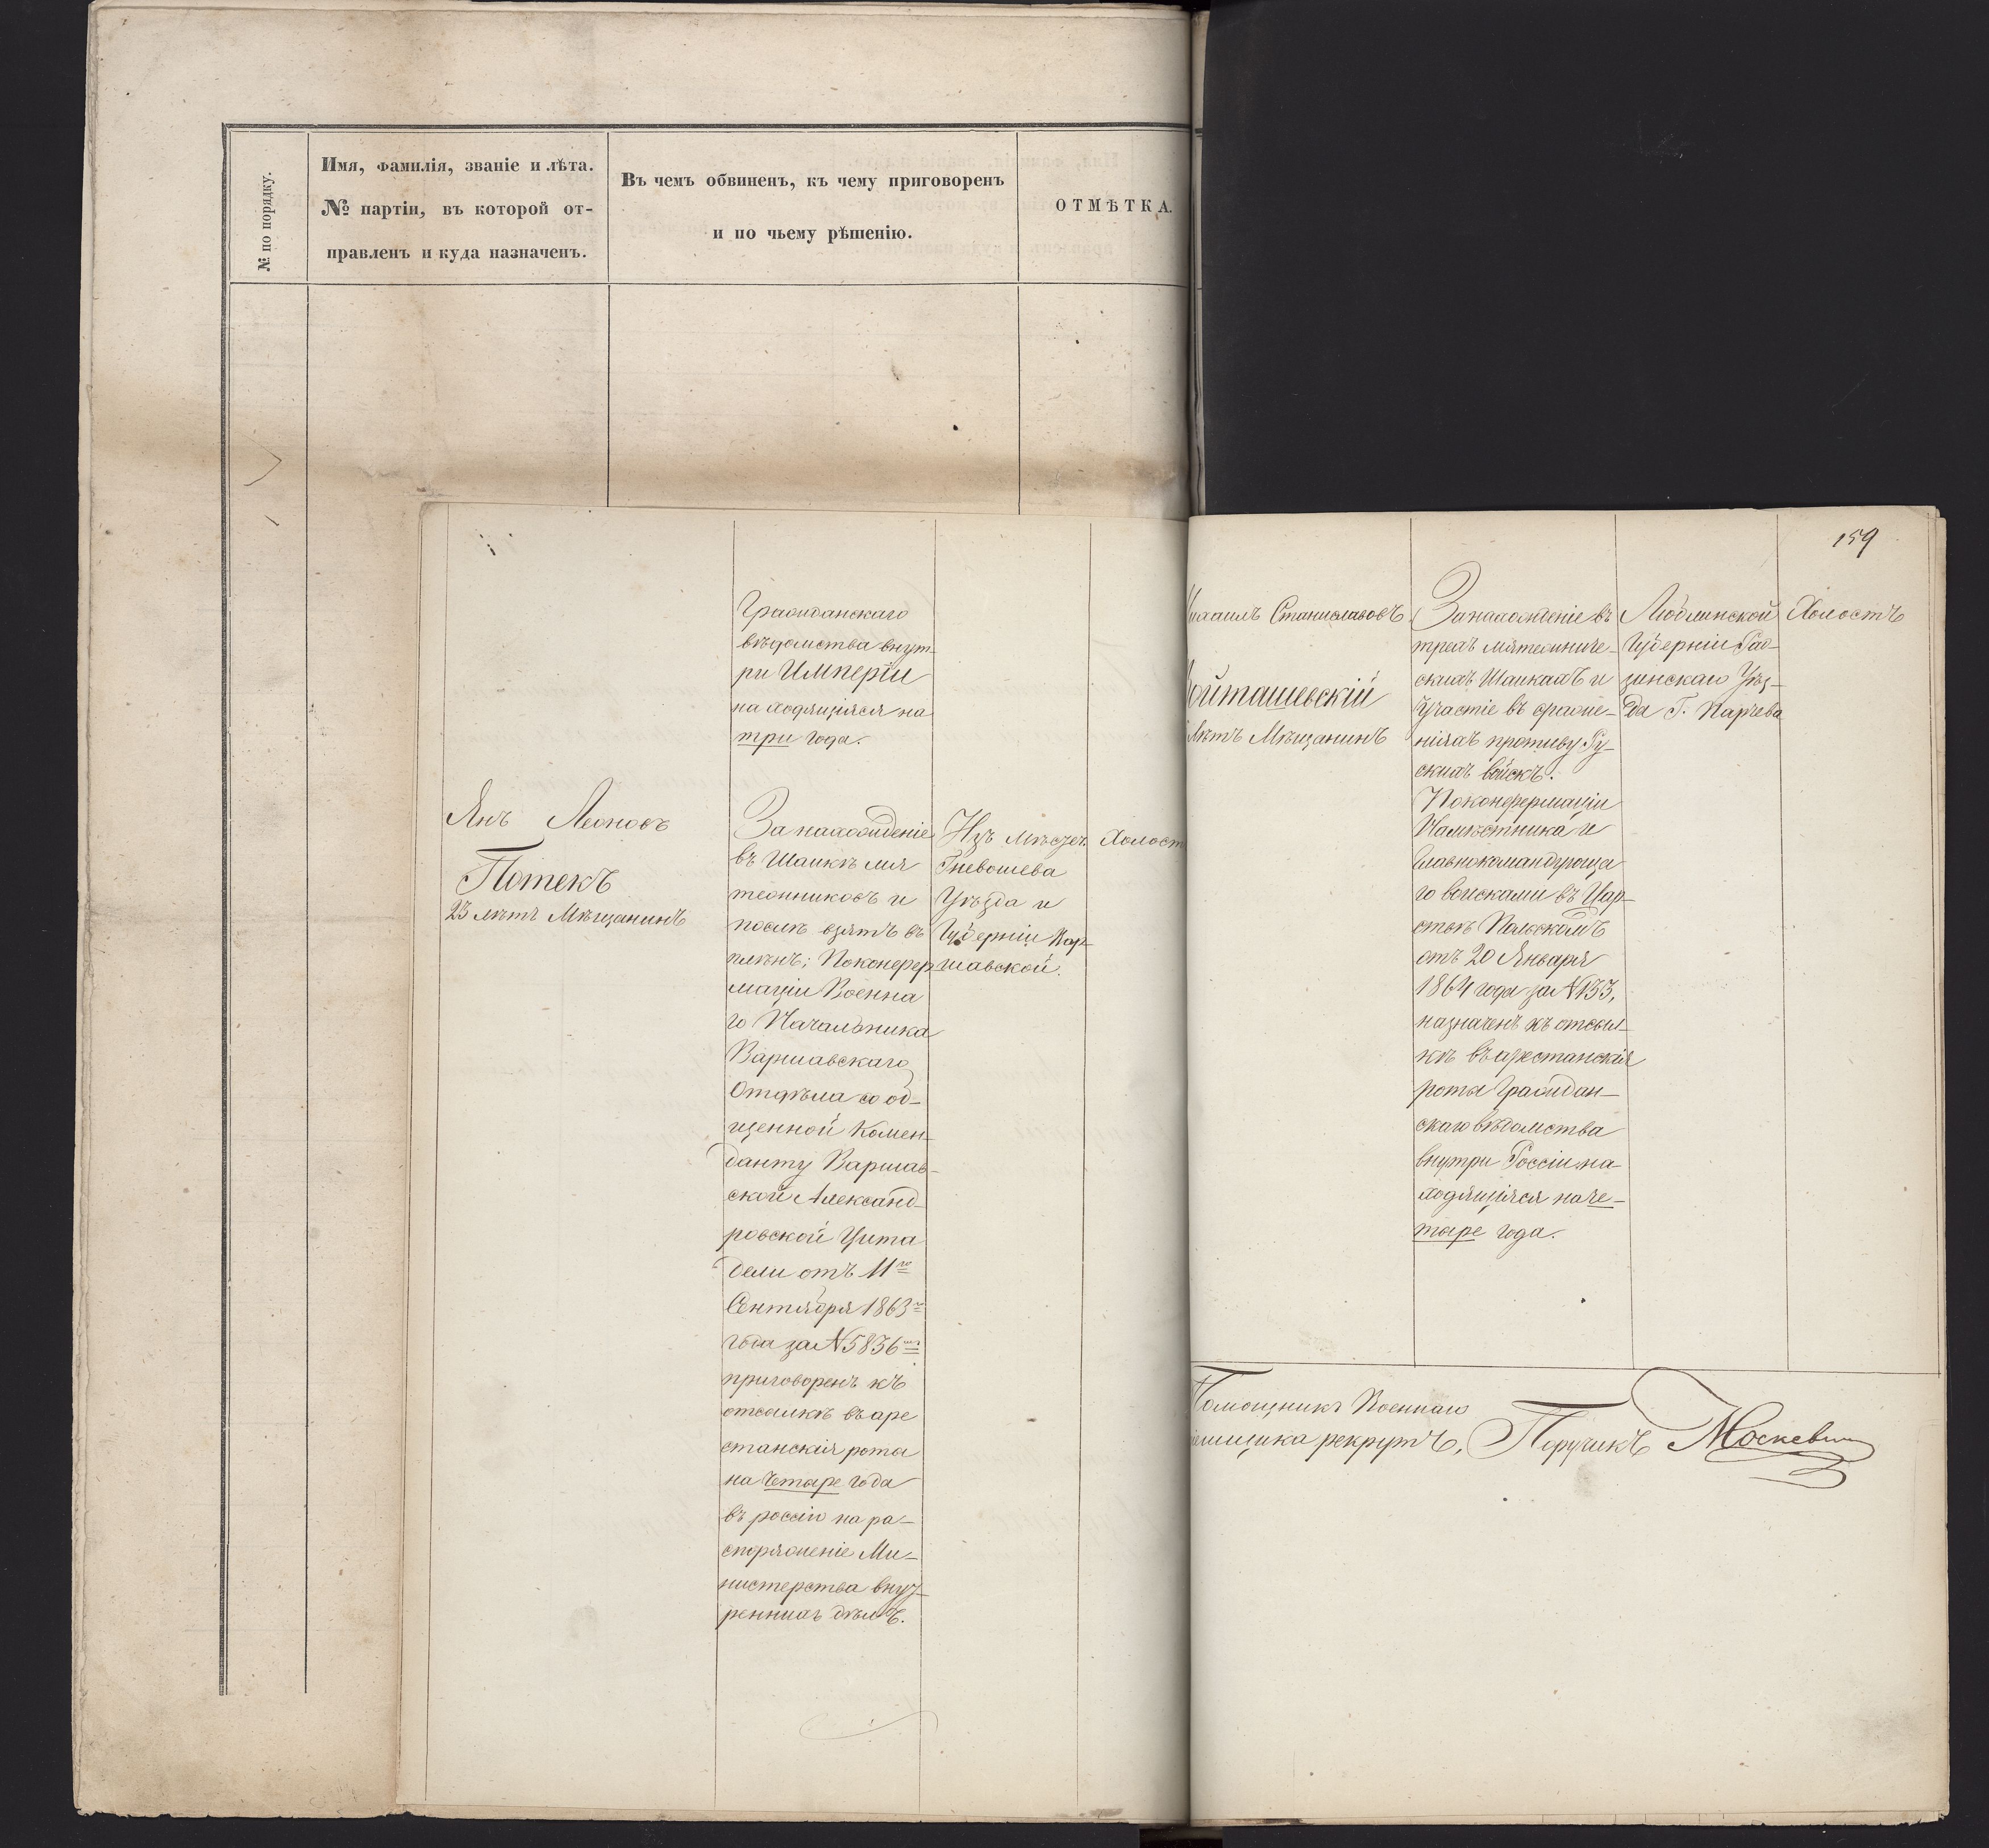 № по порядку.
Имя, фамилія, званіе и лѣта.
№ партіи, въ которой от-
правленъ и куда назначенъ.
Въ чемъ обвиненъ, къ чему приговоренъ
и по чьему рѣшенію.
ОТМѢТКА.
Гражданскаго
вѣдомства внут-
ри Имперіи
находящіяся на
три года.
Янъ Леоновъ
Потекъ
23 лѣтъ Мѣщанинъ
За нахожденіе
въ Шайкѣ мя
тежниковъ и
послѣ взятъ въ
плѣнъ; Поконфер
маціи Военна
го Начальника
Варшавскаго
Отдѣла сооб-
щенной Комен-
данту Варшав-
ской Александ-
ровской Цита
дели отъ 11го
Сентября 1863го
года за N5836
приговоренъ къ
отсылкѣ въ аре
станскія роты
на четыре года
въ россію на ра-
споряженіе Ми-
нистерства внут-
реннихъ дѣлъ.
Изъ Мѣстеч.
Гневошева
Уѣзда и
Губерніи Вар-
шавской.
Холост
159
Михаилъ Станиславовъ
Войташевскій
лѣтъ Мѣщанинъ
За нахожденіе въ
трехъ мятежниче-
скихъ Шайкахъ и
участіе въ сраже-
ніяхъ противу Ру-
скихъ войскъ.
Поконфермаціи
Намѣстника и
Главнокомандующа
го войсками въ Цар-
ствѣ Польскомъ
отъ 20 Января
1864 года за N133,
назначенъ къ отсыл-
кѣ въ арестанскія
роты Граждан-
скаго вѣдомства
внутри Россіи на-
ходящіяся на че-
тыре года.
Люблинской
Губерніи Рад-
зинскаго Уѣз-
да Г. Парчева
Холостъ
Помощникъ Военнаго
Пріемщика рекрутъ, Поручикъ